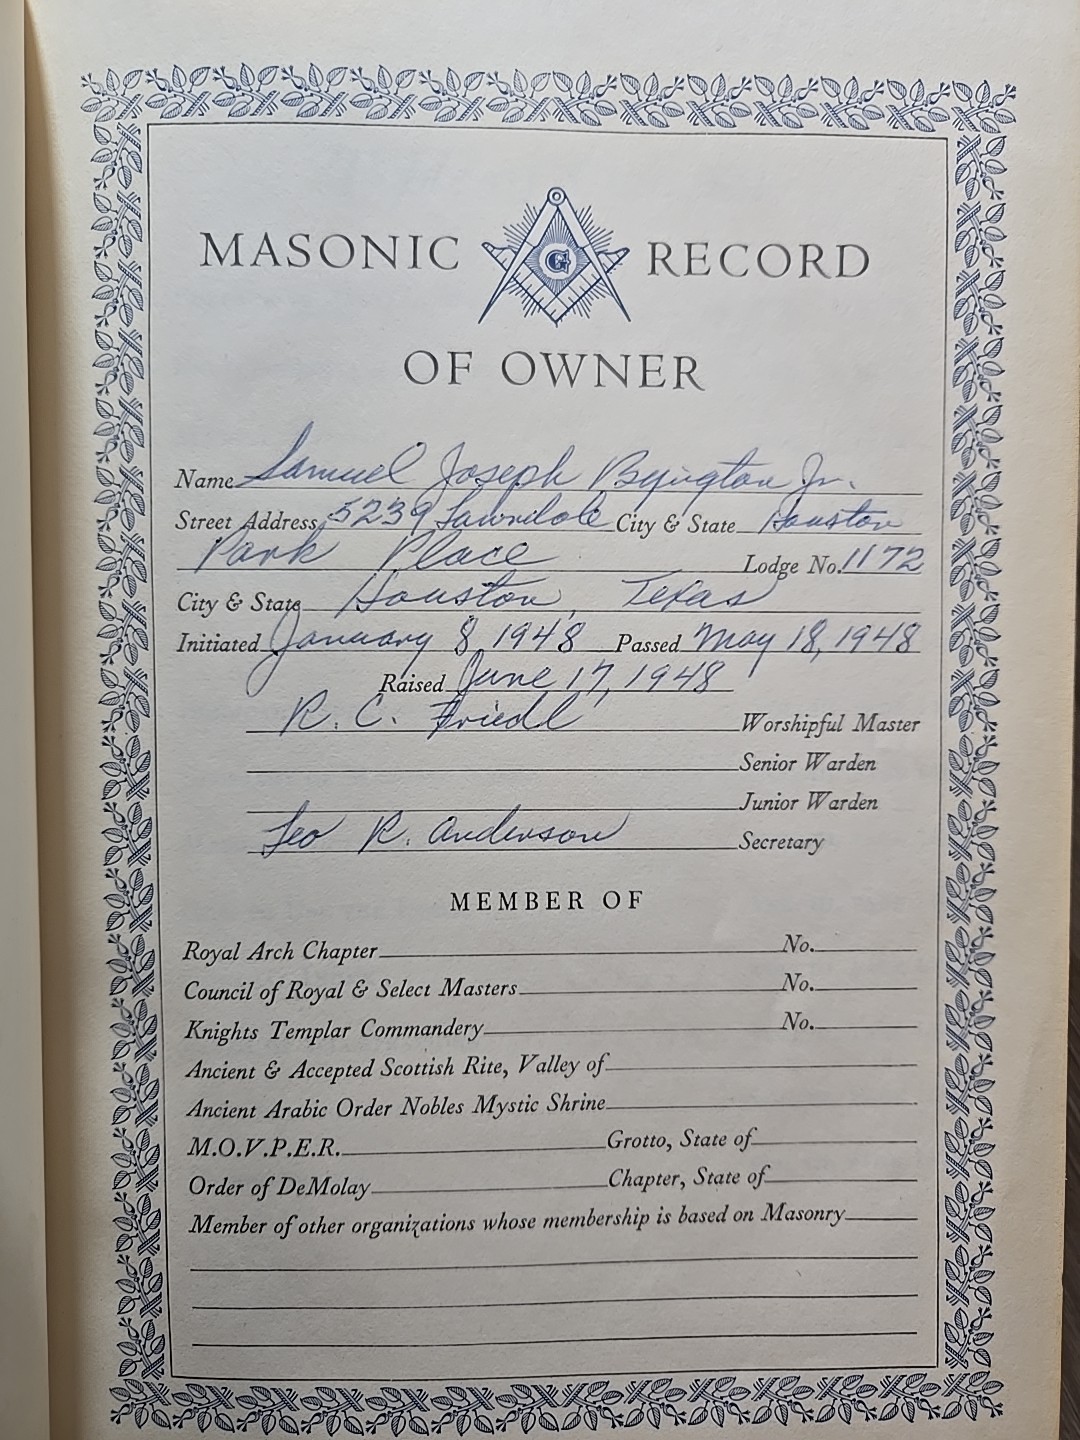 MASONIC G RECORD
OF OWNER
Name Samuel Joseph Byington Jr.
Street Address 5239 Lawndale City & State Houston
Park Place Lodge No. 1172
City & State Houston, Texas
Initiated January 8, 1948 Passed May 18, 1948
Raised June 17, 1948
R. C. Friedl Worshipful Master
Senior Warden
Junior Warden
Leo R. Anderson Secretary
MEMBER OF
Royal Arch Chapter No.
Council of Royal & Select Masters No.
Knights Templar Commandery No.
Ancient & Accepted Scottish Rite, Valley of
Ancient Arabic Order Nobles Mystic Shrine
M.O.V.P.E.R. Grotto, State of
Order of DeMolay Chapter, State of
Member of other organizations whose membership is based on Masonry